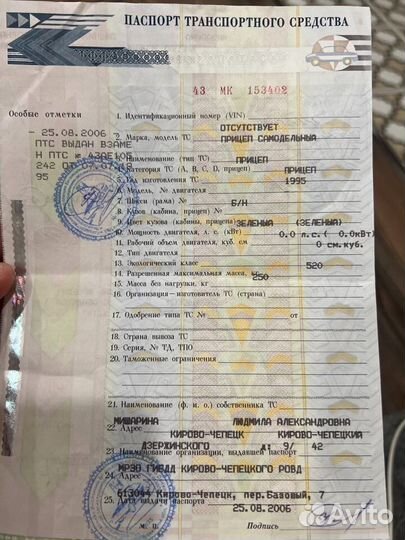 ПАСПОРТ ТРАНСПОРТНОГО СРЕДСТВА
43 МК 153402
Особые отметки
- 25.08.2006
ПТС ВЫДАН ВЗАМЕ
Н ПТС №
242 ОТ
95
1. Идентификационный номер (VIN)
ОТСУТСТВУЕТ
2. Марка, модель ТС ПРИЦЕП САМОДЕЛЬНЫЙ
3. Наименование (тип ТС) ПРИЦЕП
4. Категория ТС (A, B, C, D, прицеп) ПРИЦЕП
5. Год изготовления ТС 1995
6. Модель, № двигателя
7. Шасси (рама) № Б/Н
8. Кузов (кабина, прицеп) №
9. Цвет кузова (кабины, прицепа) ЗЕЛЕНЫЙ (ЗЕЛЕНЫЙ)
10. Мощность двигателя, л. с. (кВт) 0.0 л.с.( 0.0кВт)
11. Рабочий объем двигателя, куб. см 0 см.куб.
12. Тип двигателя
13. Экологический класс
520
14. Разрешенная максимальная масса, кг
250
15. Масса без нагрузки, кг
16. Организация-изготовитель ТС (страна)
17. Одобрение типа ТС № от
18. Страна вывоза ТС
19. Серия, № ТД, ТПО
20. Таможенные ограничения
21. Наименование (ф. и. о.) собственника ТС
МИШАРИНА ЛЮДМИЛА АЛЕКСАНДРОВНА
22. Адрес
КИРОВО-ЧЕПЕЦК КИРОВО-ЧЕПЕЦКИЙ
ДЗЕРЖИНСКОГО Д: 9/ 42
23. Наименование организации, выдавшей паспорт
МРЭО ГИБДД КИРОВО-ЧЕПЕЦКОГО РОВД
24. Адрес
613044 Кирово-Чепецк, пер.Базовый, 7
25. Дата выдачи паспорта
25.08.2006
М. П. Подпись
Avito